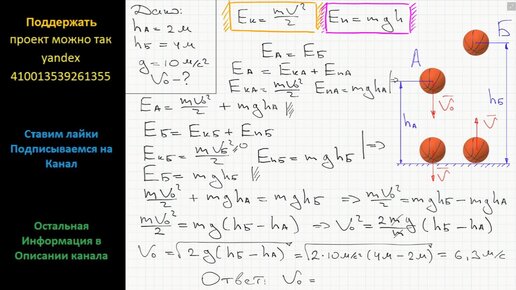 Поддержать
проект можно так
yandex
410013539261355
Ставим лайки
Подписываемся на
Канал
Остальная
Информация в
Описании канала
Дано:
hA = 2м
hБ = 4м
g = 10 м/с²
V₀ - ?
Eк = mV²/2
Eп = mgh
EA = EБ
EA = EкA + EпA
EкA = mV₀²/2 EпA = mghA | ⇒
EA = mV₀²/2 + mghA
EБ = EкБ + EпБ
EкБ = mVБ²/2 = 0 EпБ = mghБ | ⇒
EБ = mghБ
mV₀²/2 + mghA = mghБ ⇒ mV₀²/2 = mghБ - mghA
mV₀²/2 = mg(hБ - hA) ⇒ V₀² = 2mg/m (hБ - hA)
V₀ = √2g(hБ - hA) = √2·10 м/с²(4м - 2м) = 6,3 м/с
Ответ: V₀ =
А
Б
V₀
V
V
hA
hБ